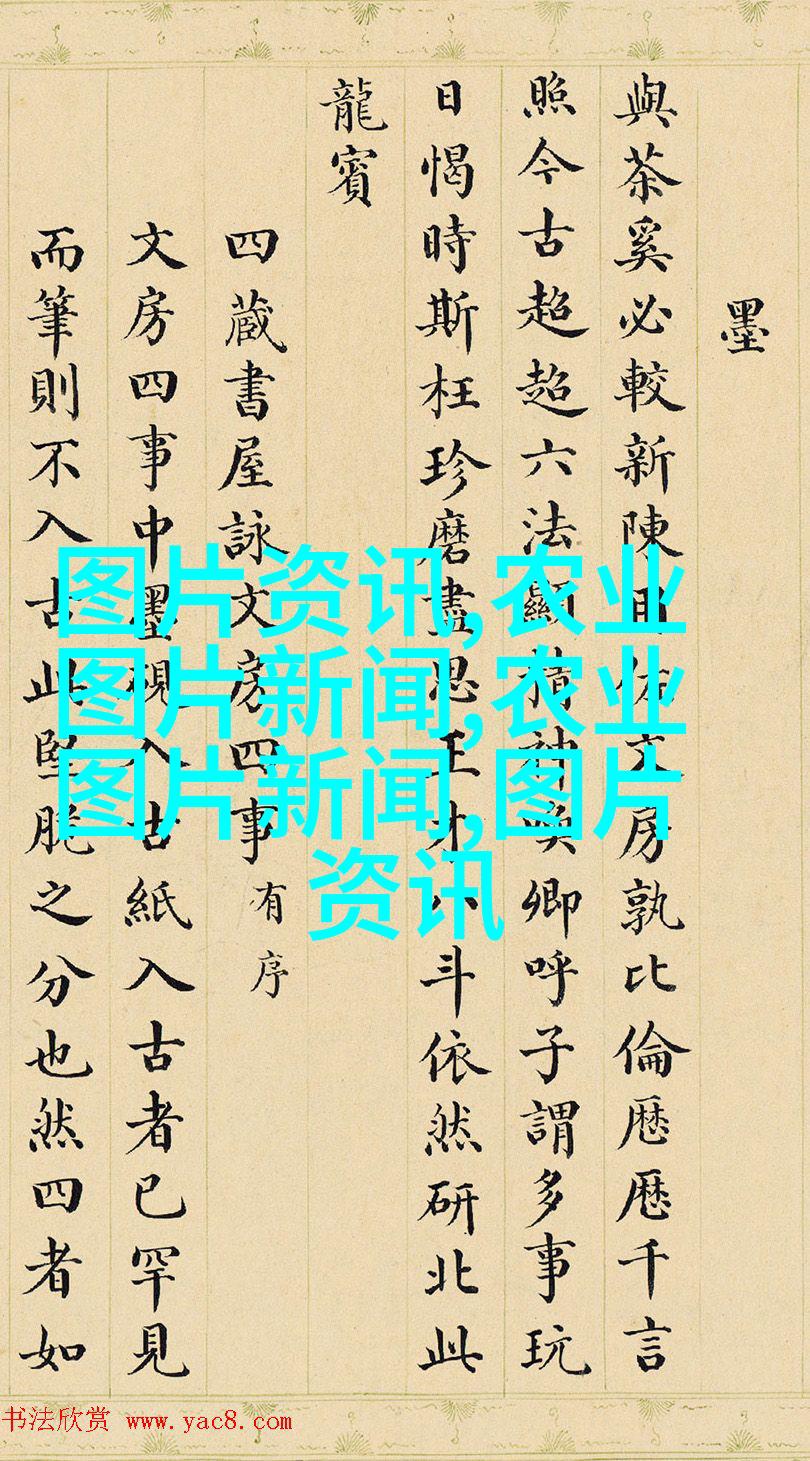 墨
與茶奚必較新陳用佐文房孰比倫歷歷千言
照今古超超六法顯精神喚卿呼子謂多事玩
日愒時斯枉珍磨盡思王才八斗依然研北此
龍賓
四蔵書屋詠文房四事有序
文房四事中墨硯入古紙入古者已罕見
而筆則不入古此堅脆之分也然四者如
图片资讯,农业
图片新闻,农业
图片新闻,图片
资讯
书法欣赏 www.yac8.com